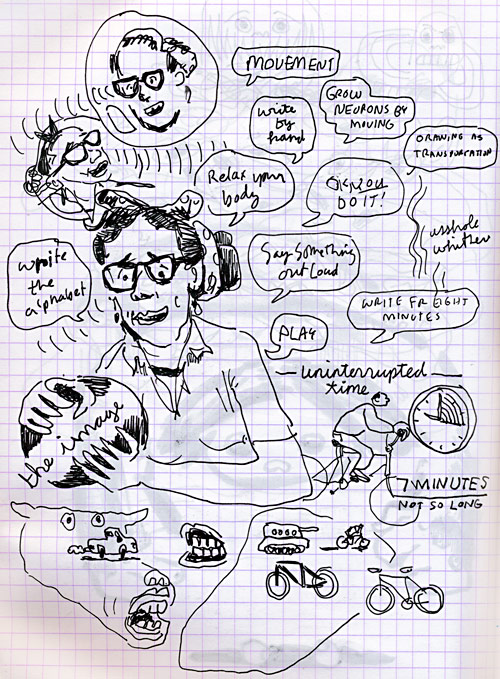 MOVEMENT
write
by
hand
GROW
NEURONS BY
MOVING
DRAWING AS
TRANSPORTATION
Relax your
body
DO IT!
asshole
write
the
alphabet
Say Something
out Loud
WRITE FR EIGHT
MINUTES
PLAY
uninterrupted
time
the image
7 MINUTES
NOT SO LONG